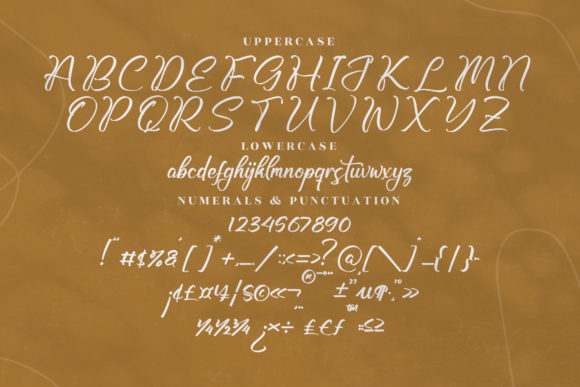 UPPERCASE
ABCDEFGHIJKLMN
OPQRSTUVWXYZ
LOWERCASE
abcdefghijklmnopqrstuvwxyz
NUMERALS & PUNCTUATION
1234567890
!"#$%&'[]*+,-./:;<=>?@[\]^_{|}~
¡¢£¤¥¦§©«¬®¯°±²³µ¶·¸¹º»
¼½¾¿×÷£€ƒ≤≥